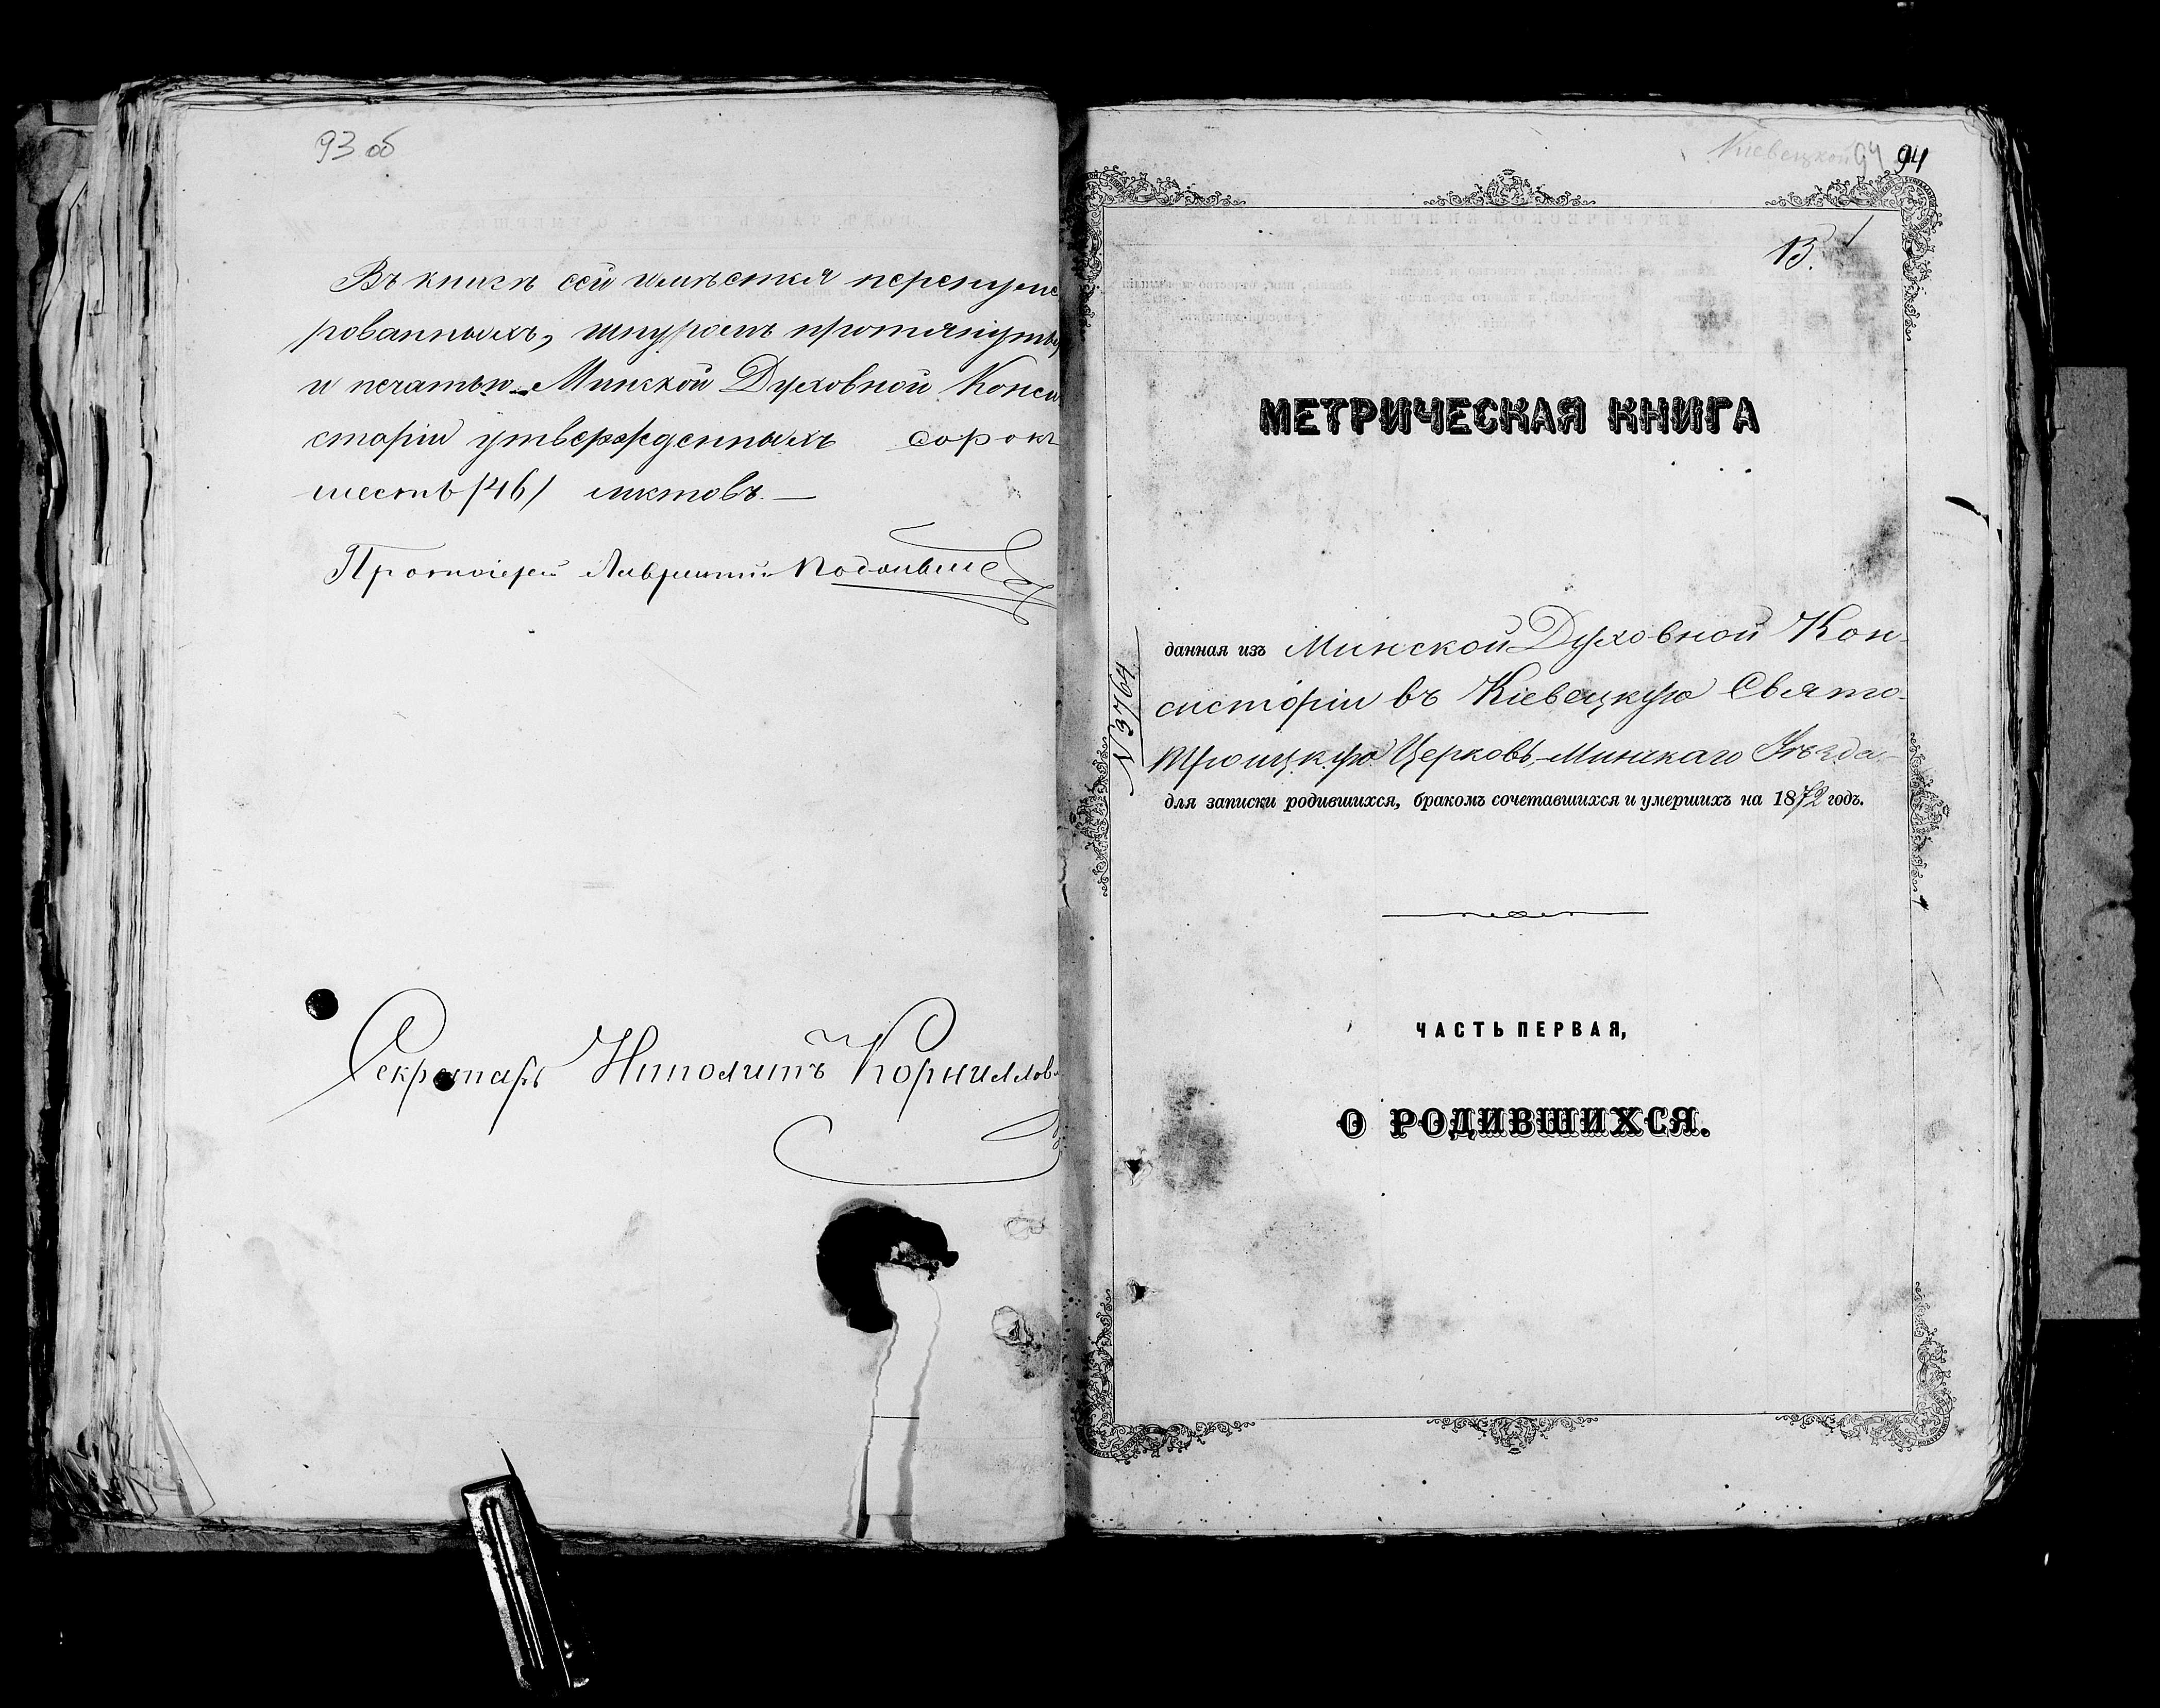 93 об
Въ книгѣ сей имѣется перенуме
рованныхъ, шнуромъ протянуты
и печатью Минской Духовной Конси
сторіи утвержденныхъ сорокъ
шесть /46/ листовъ. —
Протоіерей
Секретарь Иполитъ Корнилов
Киевецкой 94 94
13.
МЕТРИЧЕСКАЯ КНИГА
N 3764
данная изъ Минской Духовной Кон-
систоріи въ Кіевецкую Свято-
Троицкую Церковь, Минскаго Уѣзда,
для записки родившихся, бракомъ сочетавшихся и умершихъ на 1872 годъ.
ЧАСТЬ ПЕРВАЯ,
О РОДИВШИХСЯ.